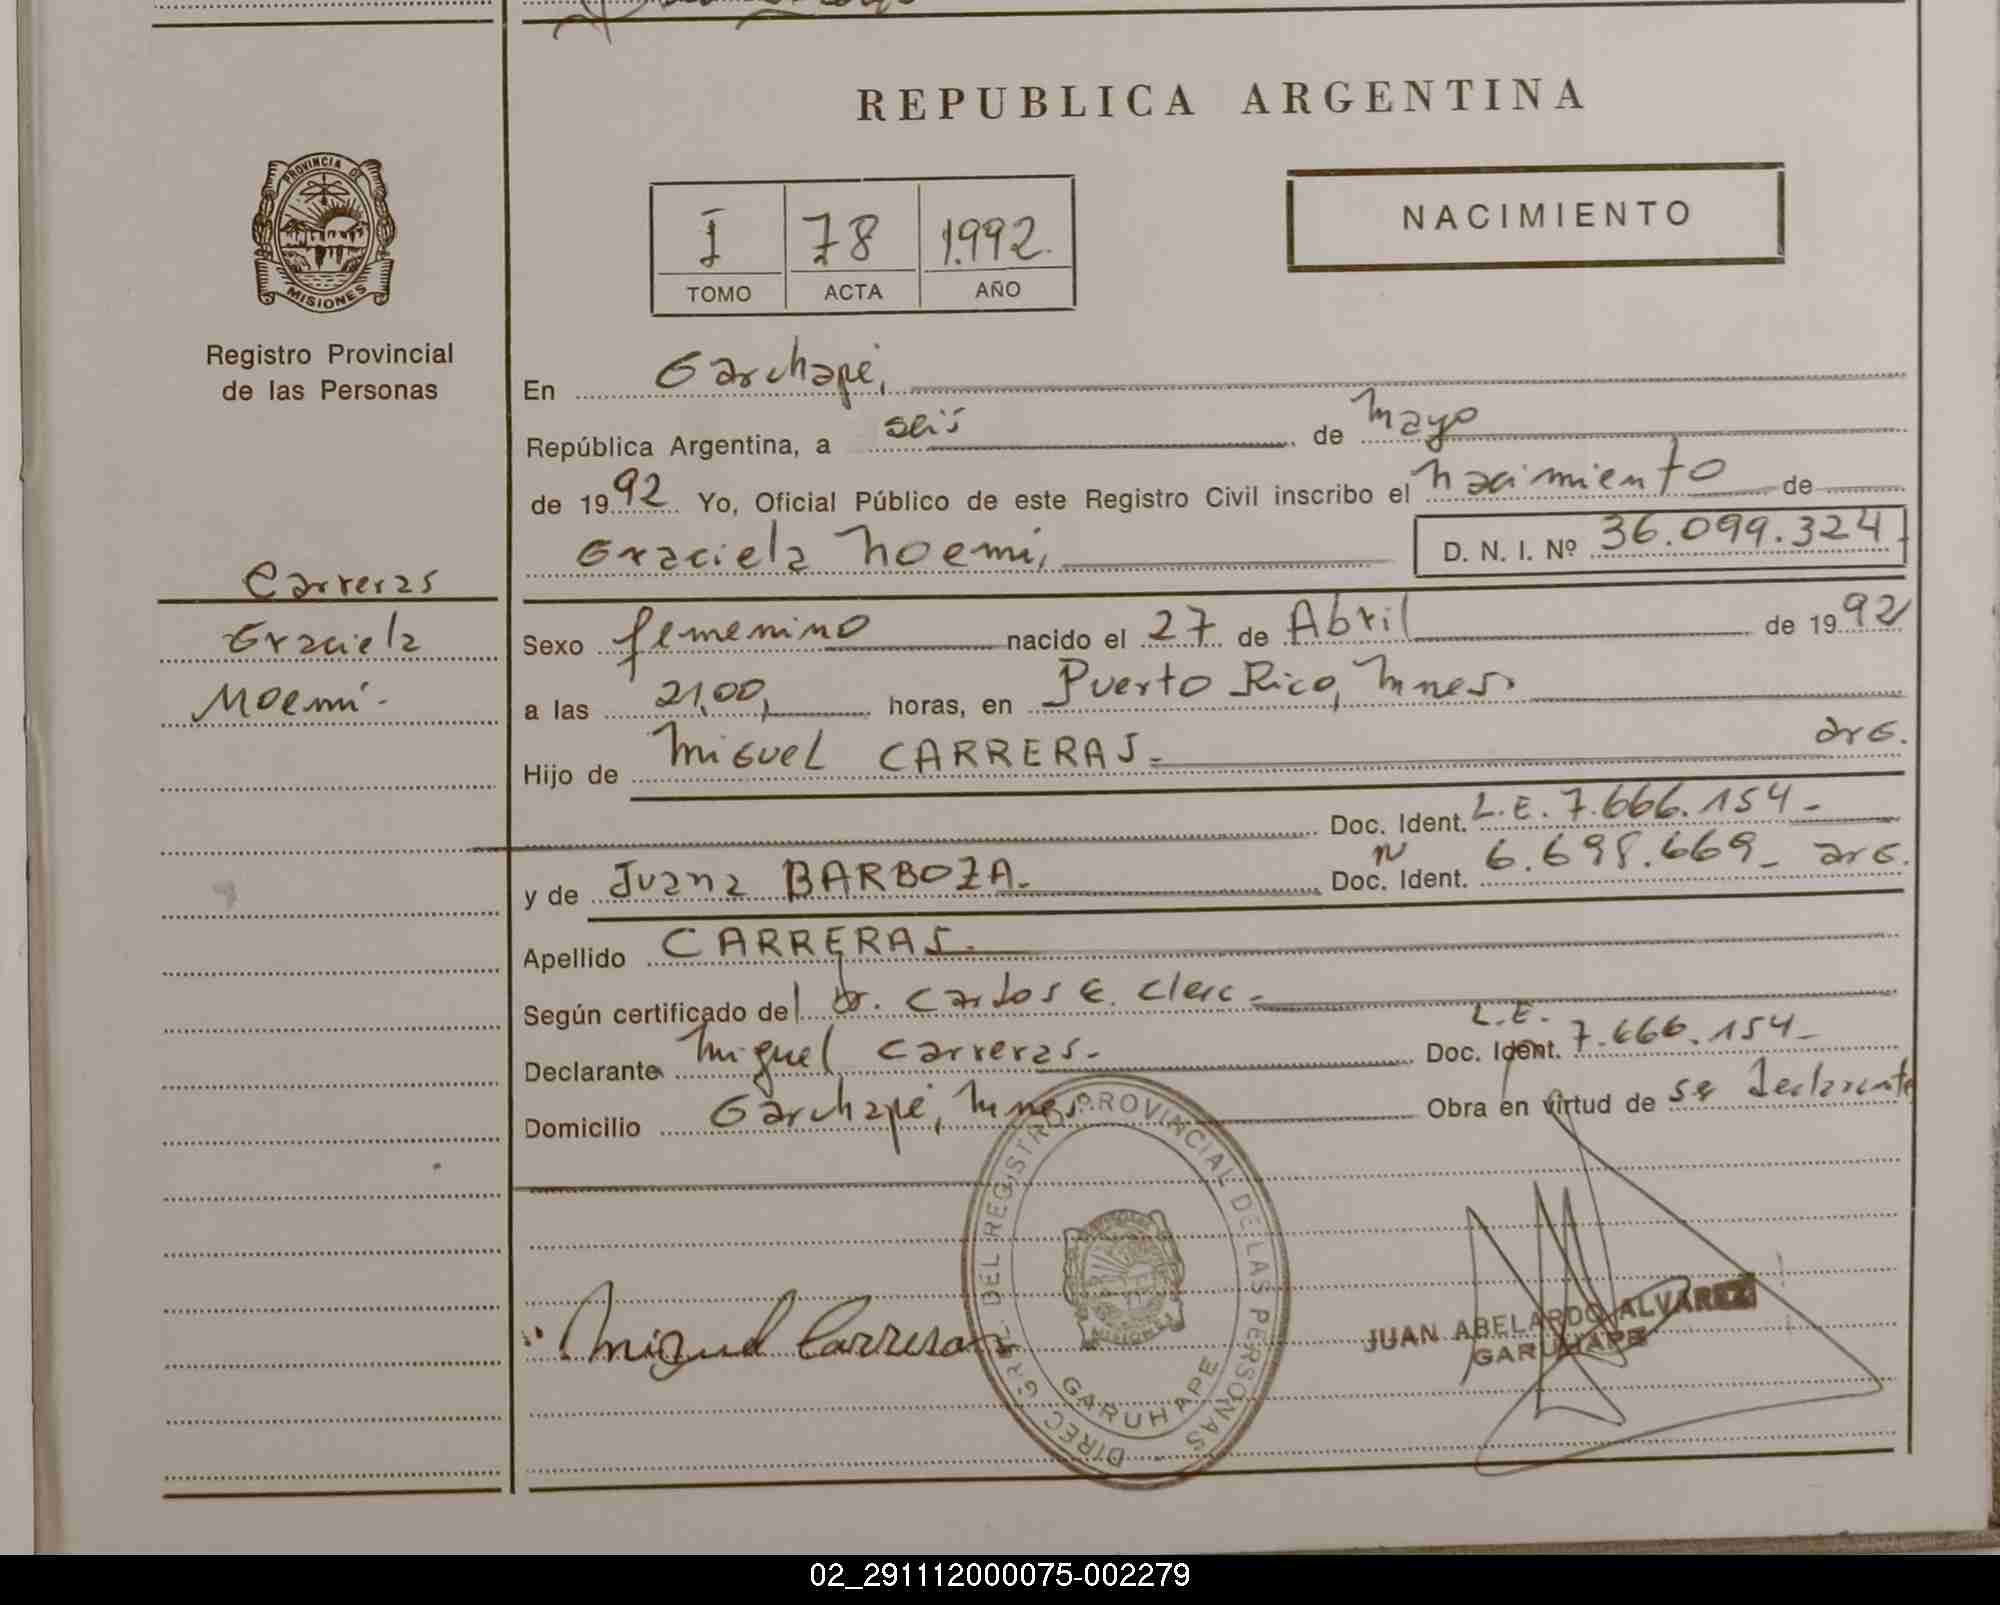 REPUBLICA ARGENTINA
PROVINCIA DE
MISIONES
Registro Provincial
de las Personas
I 78 1.992.
TOMO ACTA AÑO
NACIMIENTO
En Garuhapé,
República Argentina, a seis de Mayo
de 1992 Yo, Oficial Público de este Registro Civil inscribo el nacimiento de
Graciela Noemi, D. N. I. Nº 36.099.324
Carreras
Graciela
Noemi.
Sexo femenino nacido el 27 de Abril de 1992
a las 21,00, horas, en Puerto Rico, Mnes.
Hijo de Miguel CARRERAS.- arg.
Doc. Ident. L.E. 7.666.154-
y de Juana BARBOZA.- Doc. Ident. Nº 6.698.669- arg.
Apellido CARRERAS.-
Según certificado del Dr. Carlos E. Clerc-
Declarante Miguel Carreras.- Doc. Ident. L.E. 7.666.154-
Domicilio Garuhapé, Mnes. Obra en virtud de ser declarante
DIREC. GRAL. DEL REGISTRO PROVINCIAL DE LAS PERSONAS
MISIONES
GARUHAPE
Miguel Carreras
JUAN ABELARDO ALVAREZ
GARUHAPE
02_291112000075-002279